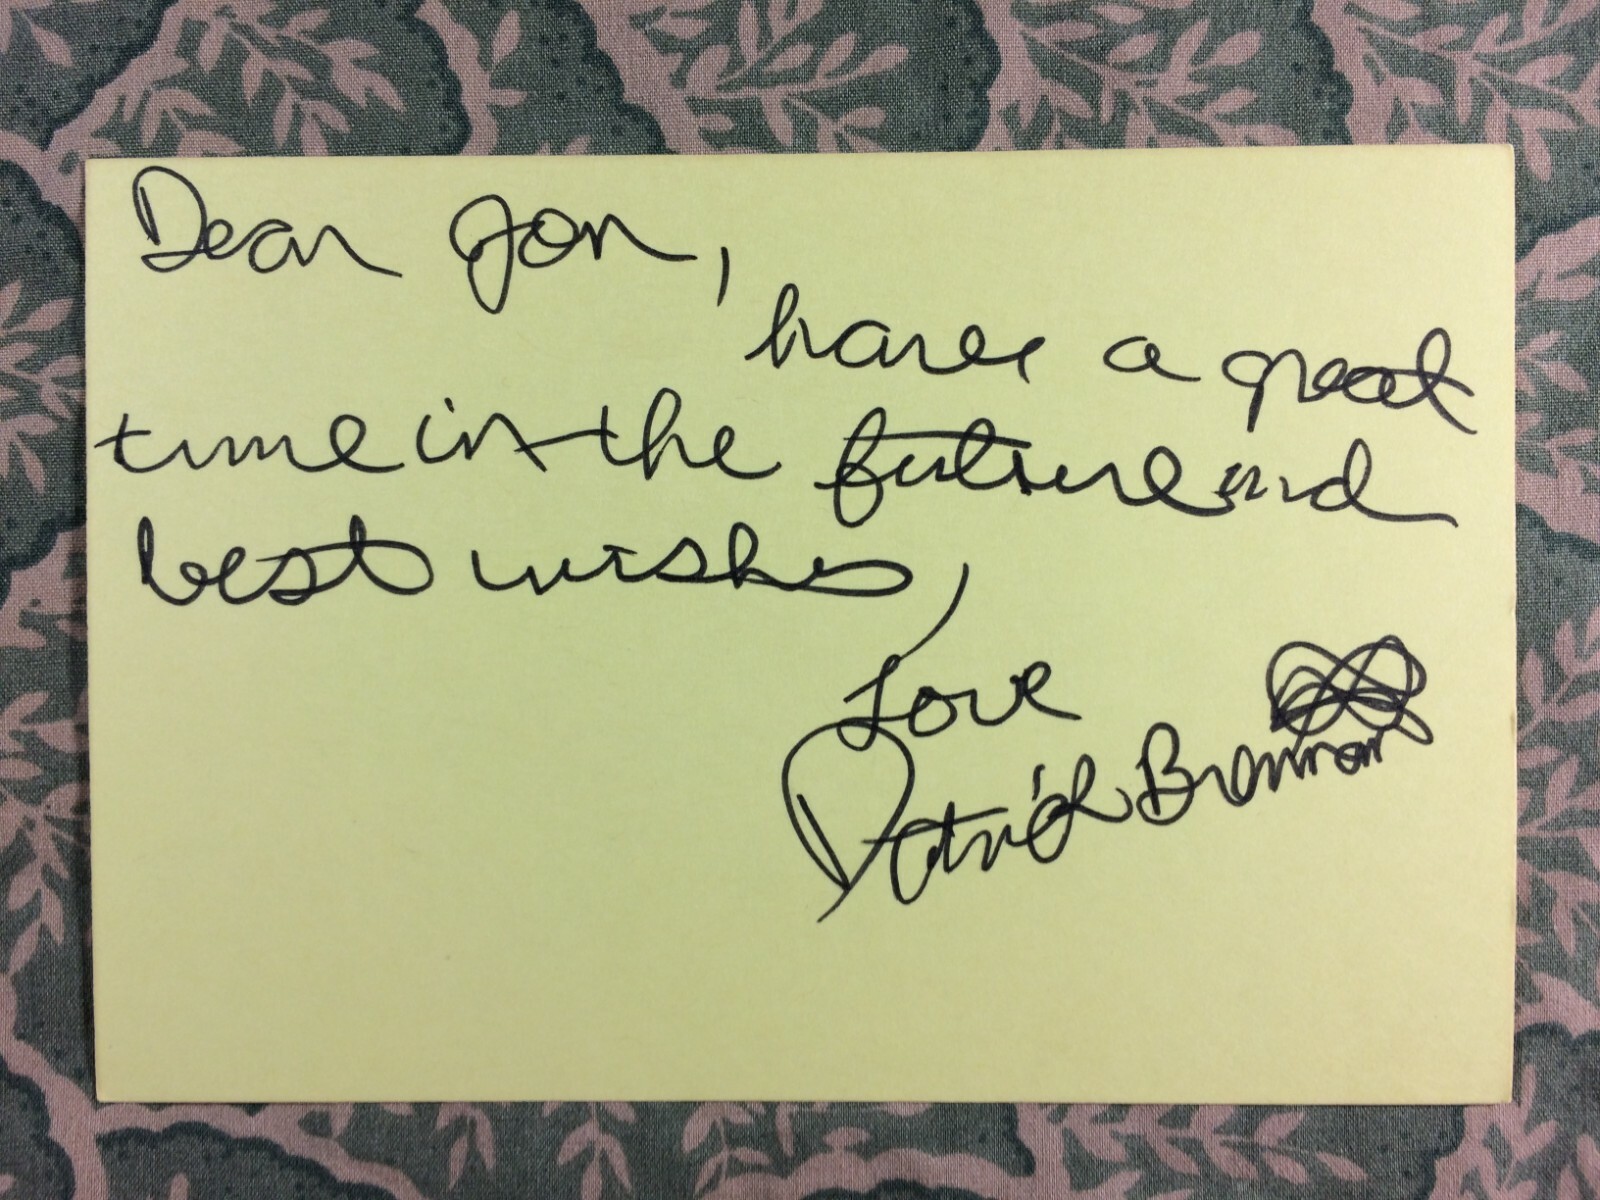 Dear Jon,
have a great
time in the future and
best wishes,
Love
Patrick Brannan